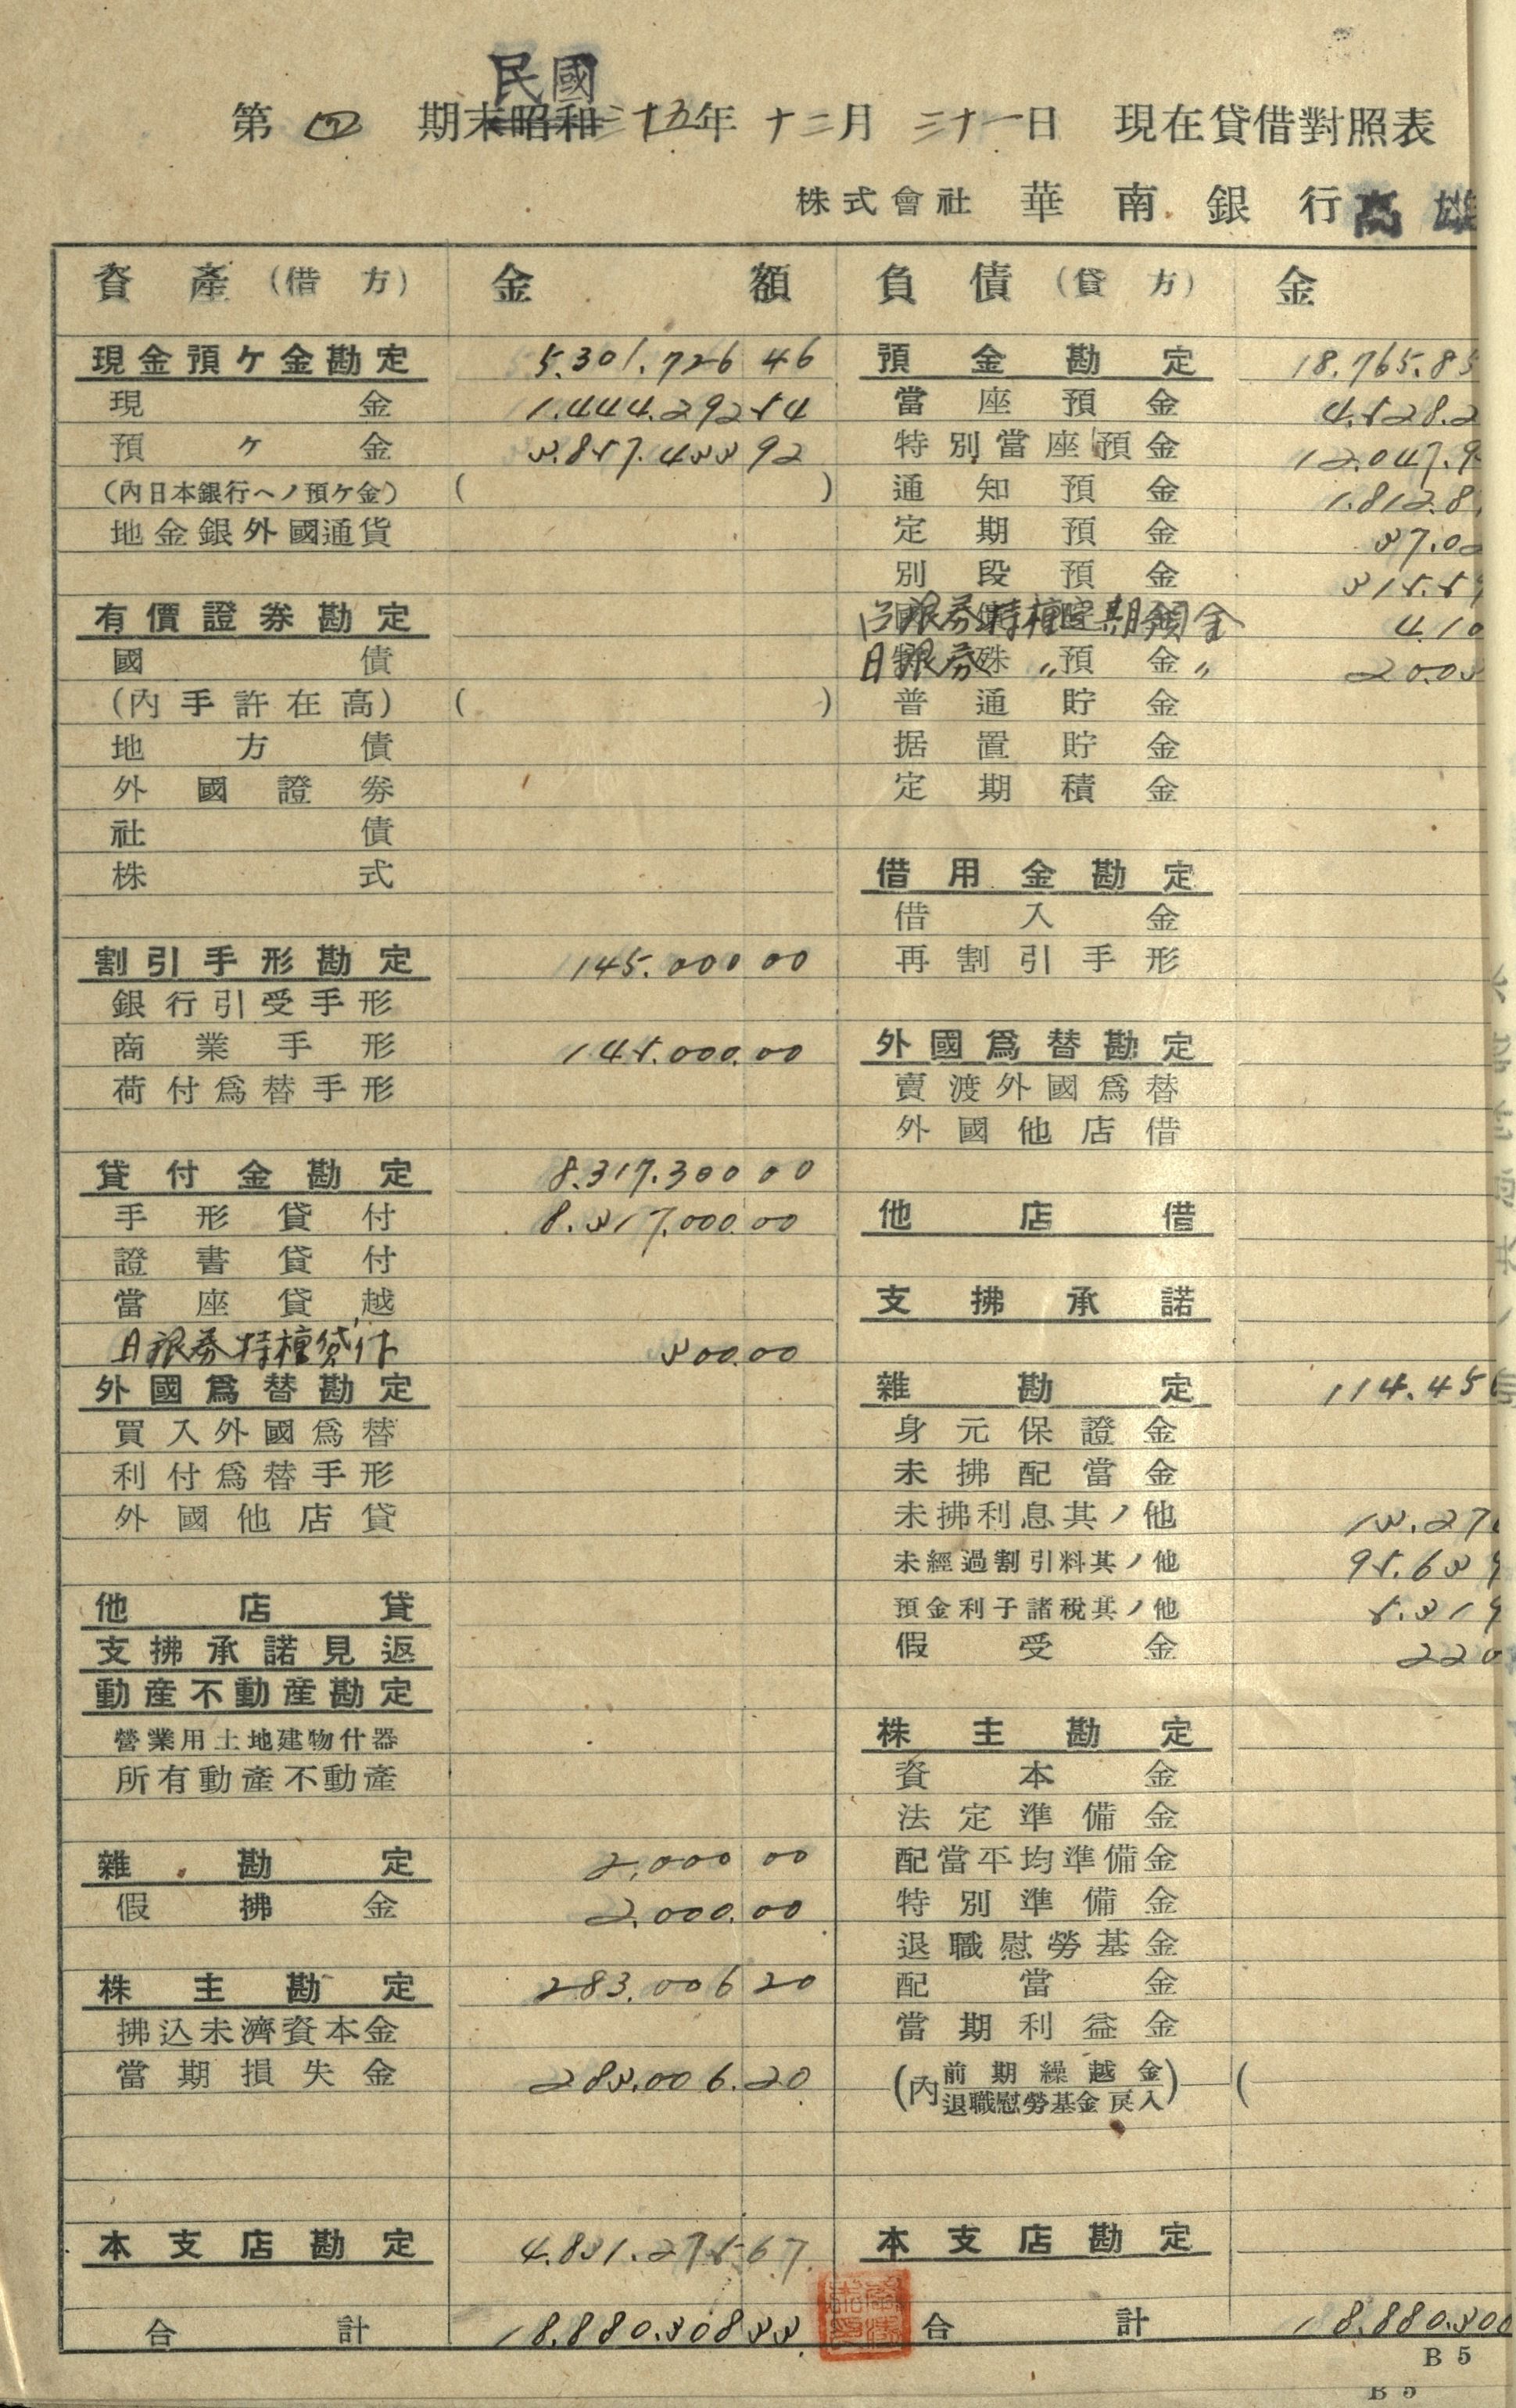 民國
第 四 期末昭和三十五年 十二月 三十一日 現在貸借對照表
株式會社 華南銀行高雄
資產(借方) 金額
現金預ケ金勘定 5.301.726 46
現金 1.444.292 54
預ケ金 3.857.433 92
(內日本銀行ヘノ預ケ金) ( )
地金銀外國通貨
有價證券勘定
國債
(內手許在高) ( )
地方債
外國證券
社債
株式
割引手形勘定 145.000 00
銀行引受手形
商業手形 145.000.00
荷付爲替手形
貸付金勘定 8.317.300 00
手形貸付 8.317.000.00
證書貸付
當座貸越
日銀券特種貸付 300.00
外國爲替勘定
買入外國爲替
利付爲替手形
外國他店貸
他店貸
支拂承諾見返
動産不動産勘定
營業用土地建物什器
所有動產不動產
雜勘定 2.000 00
假拂金 2.000.00
株主勘定 283.006 20
拂込未濟資本金
當期損失金 283.006.20
本支店勘定 4.831.275 67
合計 18.880.308 33
負債(貸方) 金
預金勘定 18.765.85
當座預金 4.528.2
特別當座預金 12.047.9
通知預金 1.812.8
定期預金 37.02
別段預金 315.59
銀券特種定期預金 4.10
日銀券〃預金〃 20.03
普通貯金
据置貯金
定期積金
借用金勘定
借入金
再割引手形
外國爲替勘定
賣渡外國爲替
外國他店借
他店借
支拂承諾
雜勘定 114.45
身元保證金
未拂配當金
未拂利息其ノ他 13.27
未經過割引料其ノ他 95.639
預金利子諸稅其ノ他 5.319
假受金 220
株主勘定
資本金
法定準備金
配當平均準備金
特別準備金
退職慰勞基金
配當金
當期利益金
(內前期繰越金 退職慰勞基金戾入) (
本支店勘定
合計 18.880.308
B 5
B 5